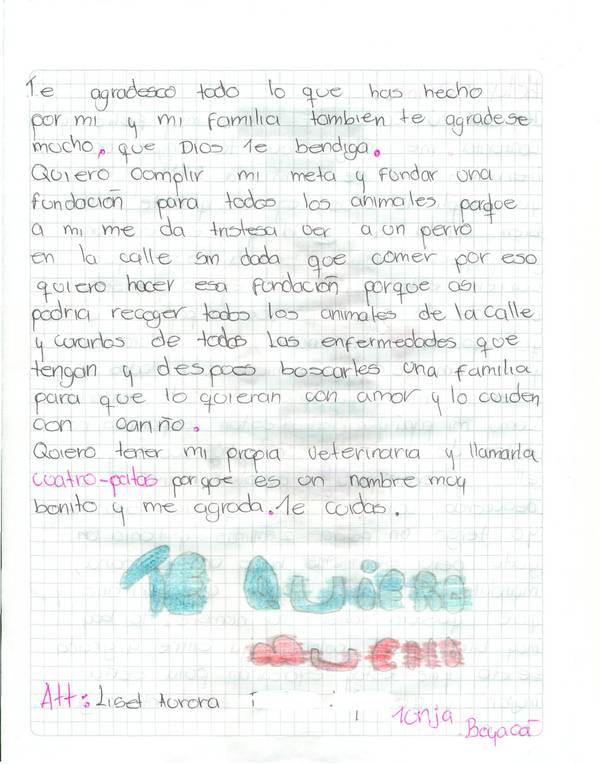 Te agradesco todo lo que has hecho
por mi y mi familia tambien te agradese
mucho, que Dios te bendiga.
Quiero complir mi meta y fundar una
fundación para todos los animales porque
a mi me da tristesa ver a un perro
en la calle sin dada que comer por eso
quiero hacer esa fundación porque asi
podria recoger todos los animales de la calle
y curarlos de todas las enfermedades que
tengan y despues boscarles una familia
para que lo quieran con amor y lo cuiden
con cariño.
Quiero tener mi propia veterinaria y llamarla
cuatro-patas porque es un nombre muy
bonito y me agrada. Te cuidas.
TE QUIERE
MUCHO
Att: Liset Aurora
Tunja
Boyacá